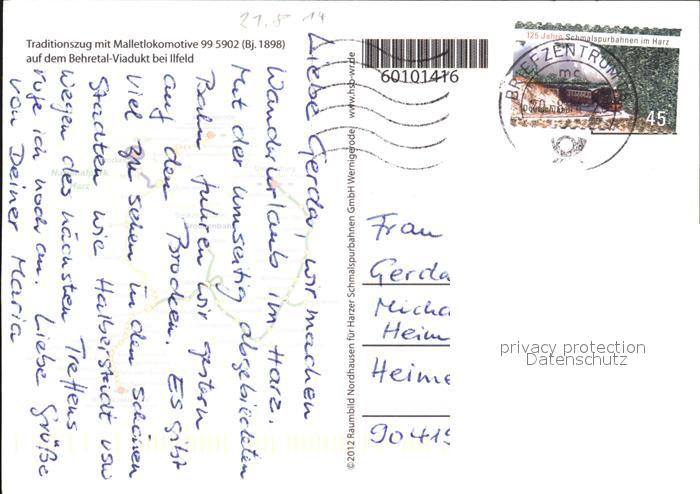 21.8 14
Traditionszug mit Malletlokomotive 99 5902 (Bj. 1898)
auf dem Behretal-Viadukt bei Ilfeld
Liebe Gerda, wir machen
Wanderurlaub im Harz.
Mit der umseitig abgebildeten
Bahn fuhren wir gestern
auf den Brocken. Es gibt
viel zu sehen in den schönen
Städten wie Halberstadt usw
Wegen des nächsten Treffens
rufe ich noch an. Liebe Grüße
von Deiner Maria
60101416
www.hsb-wr.de
©2012 Raumbild Nordhausen für Harzer Schmalspurbahnen GmbH Wernigerode
125 Jahre Schmalspurbahnen im Harz
45
BRIEFZENTRUM
mc
Frau
Gerda
Micha
Heim
Heime
90419
privacy protection
Datenschutz